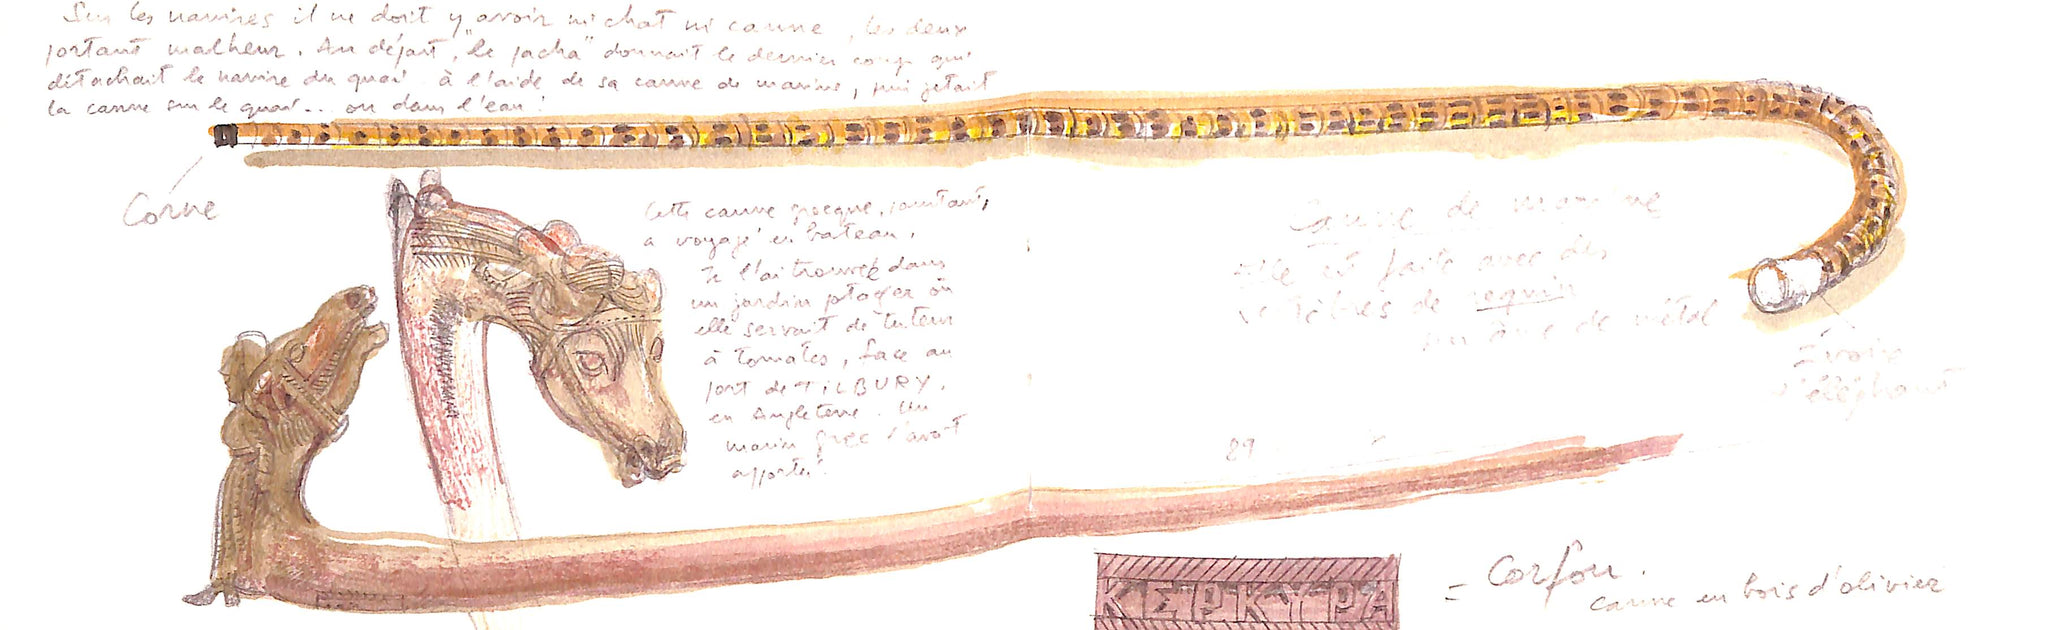 Sur les navires il ne doit y avoir ni chat ni canne, les deux
portant malheur. Au départ, "le pacha" donnait le dernier coup qui
détachait le navire du quai à l'aide de sa canne de marine, puis jetait
la canne sur le quai... ou dans l'eau!
Corne
Cette canne grecque, pourtant,
a voyagé en bateau.
Je l'ai trouvée dans
un jardin potager où
elle servait de tuteur
à tomates, face au
port de TILBURY,
en Angleterre. Un
marin grec l'avait
apportée.
Canne de marine
Elle est faite avec des
vertèbres de requin
sur âme de métal
Ivoire
d'éléphant
89
ΚΕΡΚΥΡΑ
= Corfou.
canne en bois d'olivier